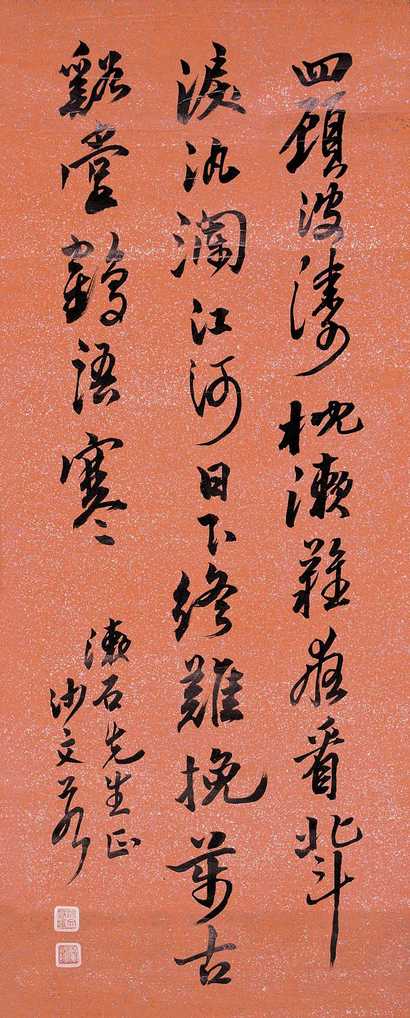 四顧波濤枕漱難夜看北斗
淚汍瀾江河日下終難挽萬古
谿堂鶴語寒
漱石先生正
沙文若